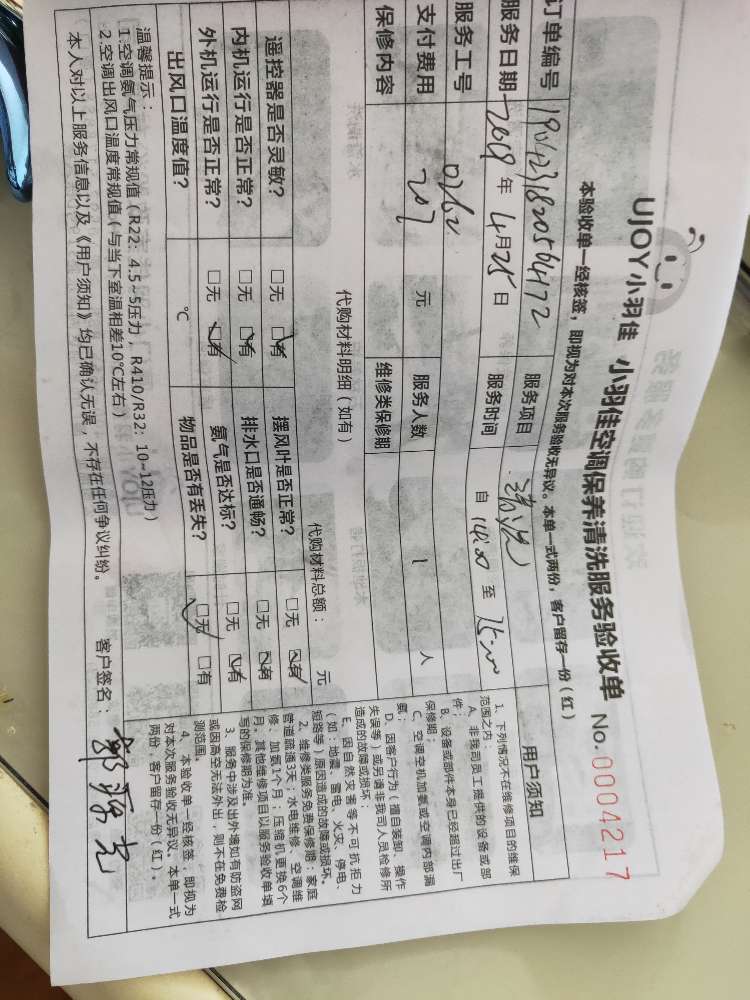 UJOY小羽佳 小羽佳空调保养清洗服务验收单 No. 0004217
本验收单一经核签，即视为对本次服务验收无异议。本单一式两份，客户留存一份（红）
订单编号 服务项目 清洗
服务日期 2019年4月25日 服务时间 自14:00至15:00
服务工号 0262
支付费用 207元 服务人数 1人
保修内容 维修类保修期
代购材料明细（如有） 代购材料总额： 元
遥控器是否灵敏？ □无 □有 摆风叶是否正常？ □无 □有
内机运行是否正常？ □无 □有 排水口是否通畅？ □无 □有
外机运行是否正常？ □无 □有 氨气是否达标？ □无 □有
出风口温度值？ ℃ 物品是否有丢失？ □无 □有
温馨提示：
1.空调氨气压力常规值（R22：4.5~5压力，R410/R32：10~12压力）
2.空调出风口温度常规值（与当下室温相差10℃左右）
本人对以上服务信息以及《用户须知》均已确认无误，不存在任何争议纠纷。 客户签名：
用户须知
1、下列情况不在维修项目的维保
范围之内：
A、非我司员工提供的设备或部
件；
B、设备或部件本身已经超过出厂
保修期；
C、空调空机加氨或空调内部漏
氨；
D、因客户行为（擅自装卸、操作
失误等）或另请非我司人员检修所
造成的故障或损坏；
E、因自然灾害等不可抗拒力
（如：地震、雷电、火灾、停电、
短路等）原因造成的故障或损坏。
2、维修类服务免费保修期：家庭
管道疏通3天；水电维修、空调维
修、加氨1个月；压缩机更换6个
月。其他维修项目以服务验收单填
写的保修期为准。
3、服务中涉及出外墙如有防盗网
或因高空无法外出，则不在免费检
测范围。
4、本验收单一经核签，即视为
对本次服务验收无异议。本单一式
两份，客户留存一份（红）。